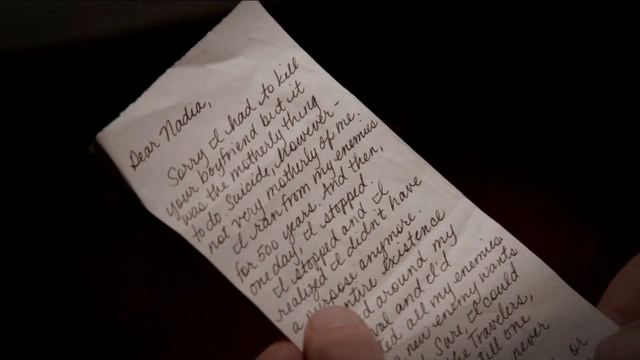 Dear Nadia,
Sorry I had to kill
your boyfriend but it
was the motherly thing
to do. Suicide, however-
not very motherly of me.
I ran from my enemies
for 500 years. And then,
one day, I stopped.
I stopped and I
realized I didn't have
a purpose anymore.
entire existence
around my
and I'd
all my enemies.
new enemy wants
Sure, I could
Travelers,
one
never
or